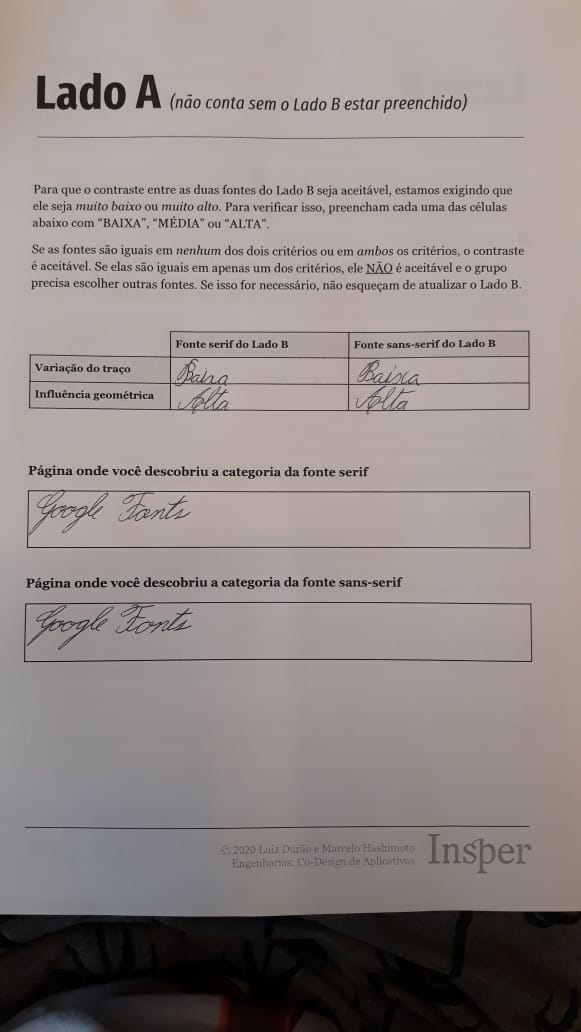 Lado A (não conta sem o Lado B estar preenchido)
Para que o contraste entre as duas fontes do Lado B seja aceitável, estamos exigindo que
ele seja muito baixo ou muito alto. Para verificar isso, preencham cada uma das células
abaixo com “BAIXA”, “MÉDIA” ou “ALTA”.
Se as fontes são iguais em nenhum dos dois critérios ou em ambos os critérios, o contraste
é aceitável. Se elas são iguais em apenas um dos critérios, ele NÃO é aceitável e o grupo
precisa escolher outras fontes. Se isso for necessário, não esqueçam de atualizar o Lado B.
Fonte serif do Lado B Fonte sans-serif do Lado B
Variação do traço Baixa Baixa
Influência geométrica Alta Alta
Página onde você descobriu a categoria da fonte serif
Google Fonts
Página onde você descobriu a categoria da fonte sans-serif
Google Fonts
© 2020 Luiz Durão e Marcelo Hashimoto
Engenharias: Co-Design de Aplicativos
Insper